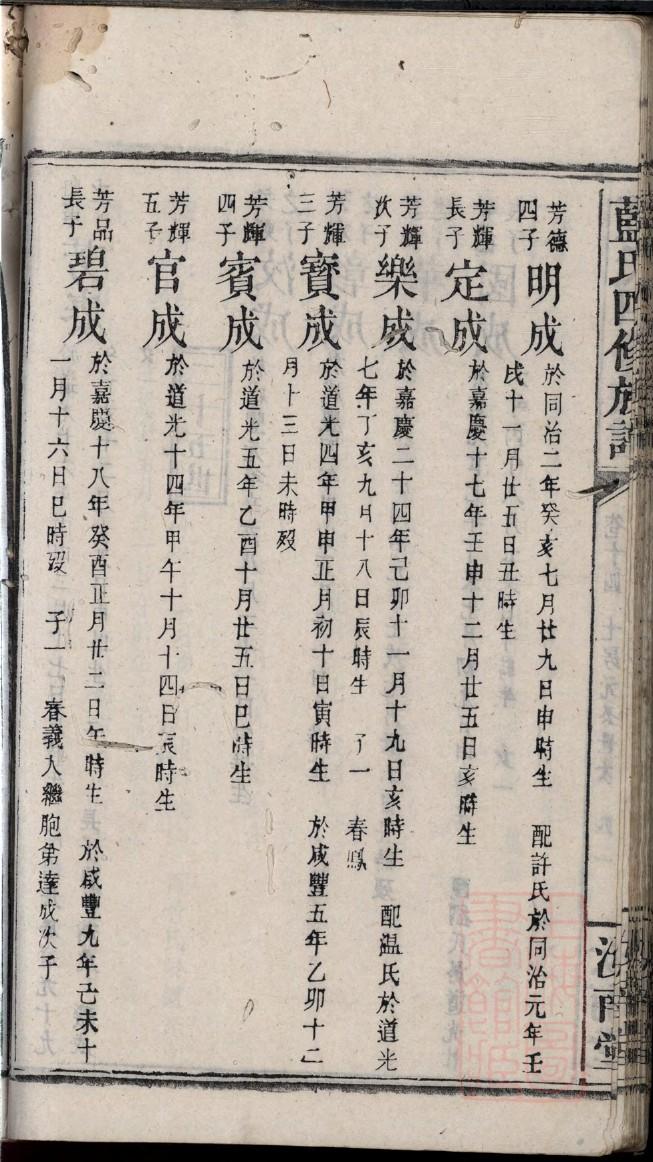 藍氏四修族譜
汝南堂
芳德四子 明成 於同治二年癸亥七月廿九日申時生 配許氏於同治元年壬
戌十一月廿五日丑時生
芳輝長子 定成 於嘉慶十七年壬申十二月廿五日亥時生
芳輝次子 樂成 於嘉慶二十四年己卯十一月十九日亥時生 配温氏於道光
七年丁亥九月十八日辰時生 子一 春鳳
芳輝三子 寶成 於道光四年甲申正月初十日寅時生 於咸豐五年乙卯十二
月十三日未時殁
芳輝四子 賓成 於道光五年乙酉十月廿五日巳時生
芳輝五子 官成 於道光十四年甲午十月十四日辰時生
芳品長子 碧成 於嘉慶十八年癸酉正月廿二日午時生 於咸豐九年己未十
一月十六日巳時殁 子一 春義入繼胞弟達成次子